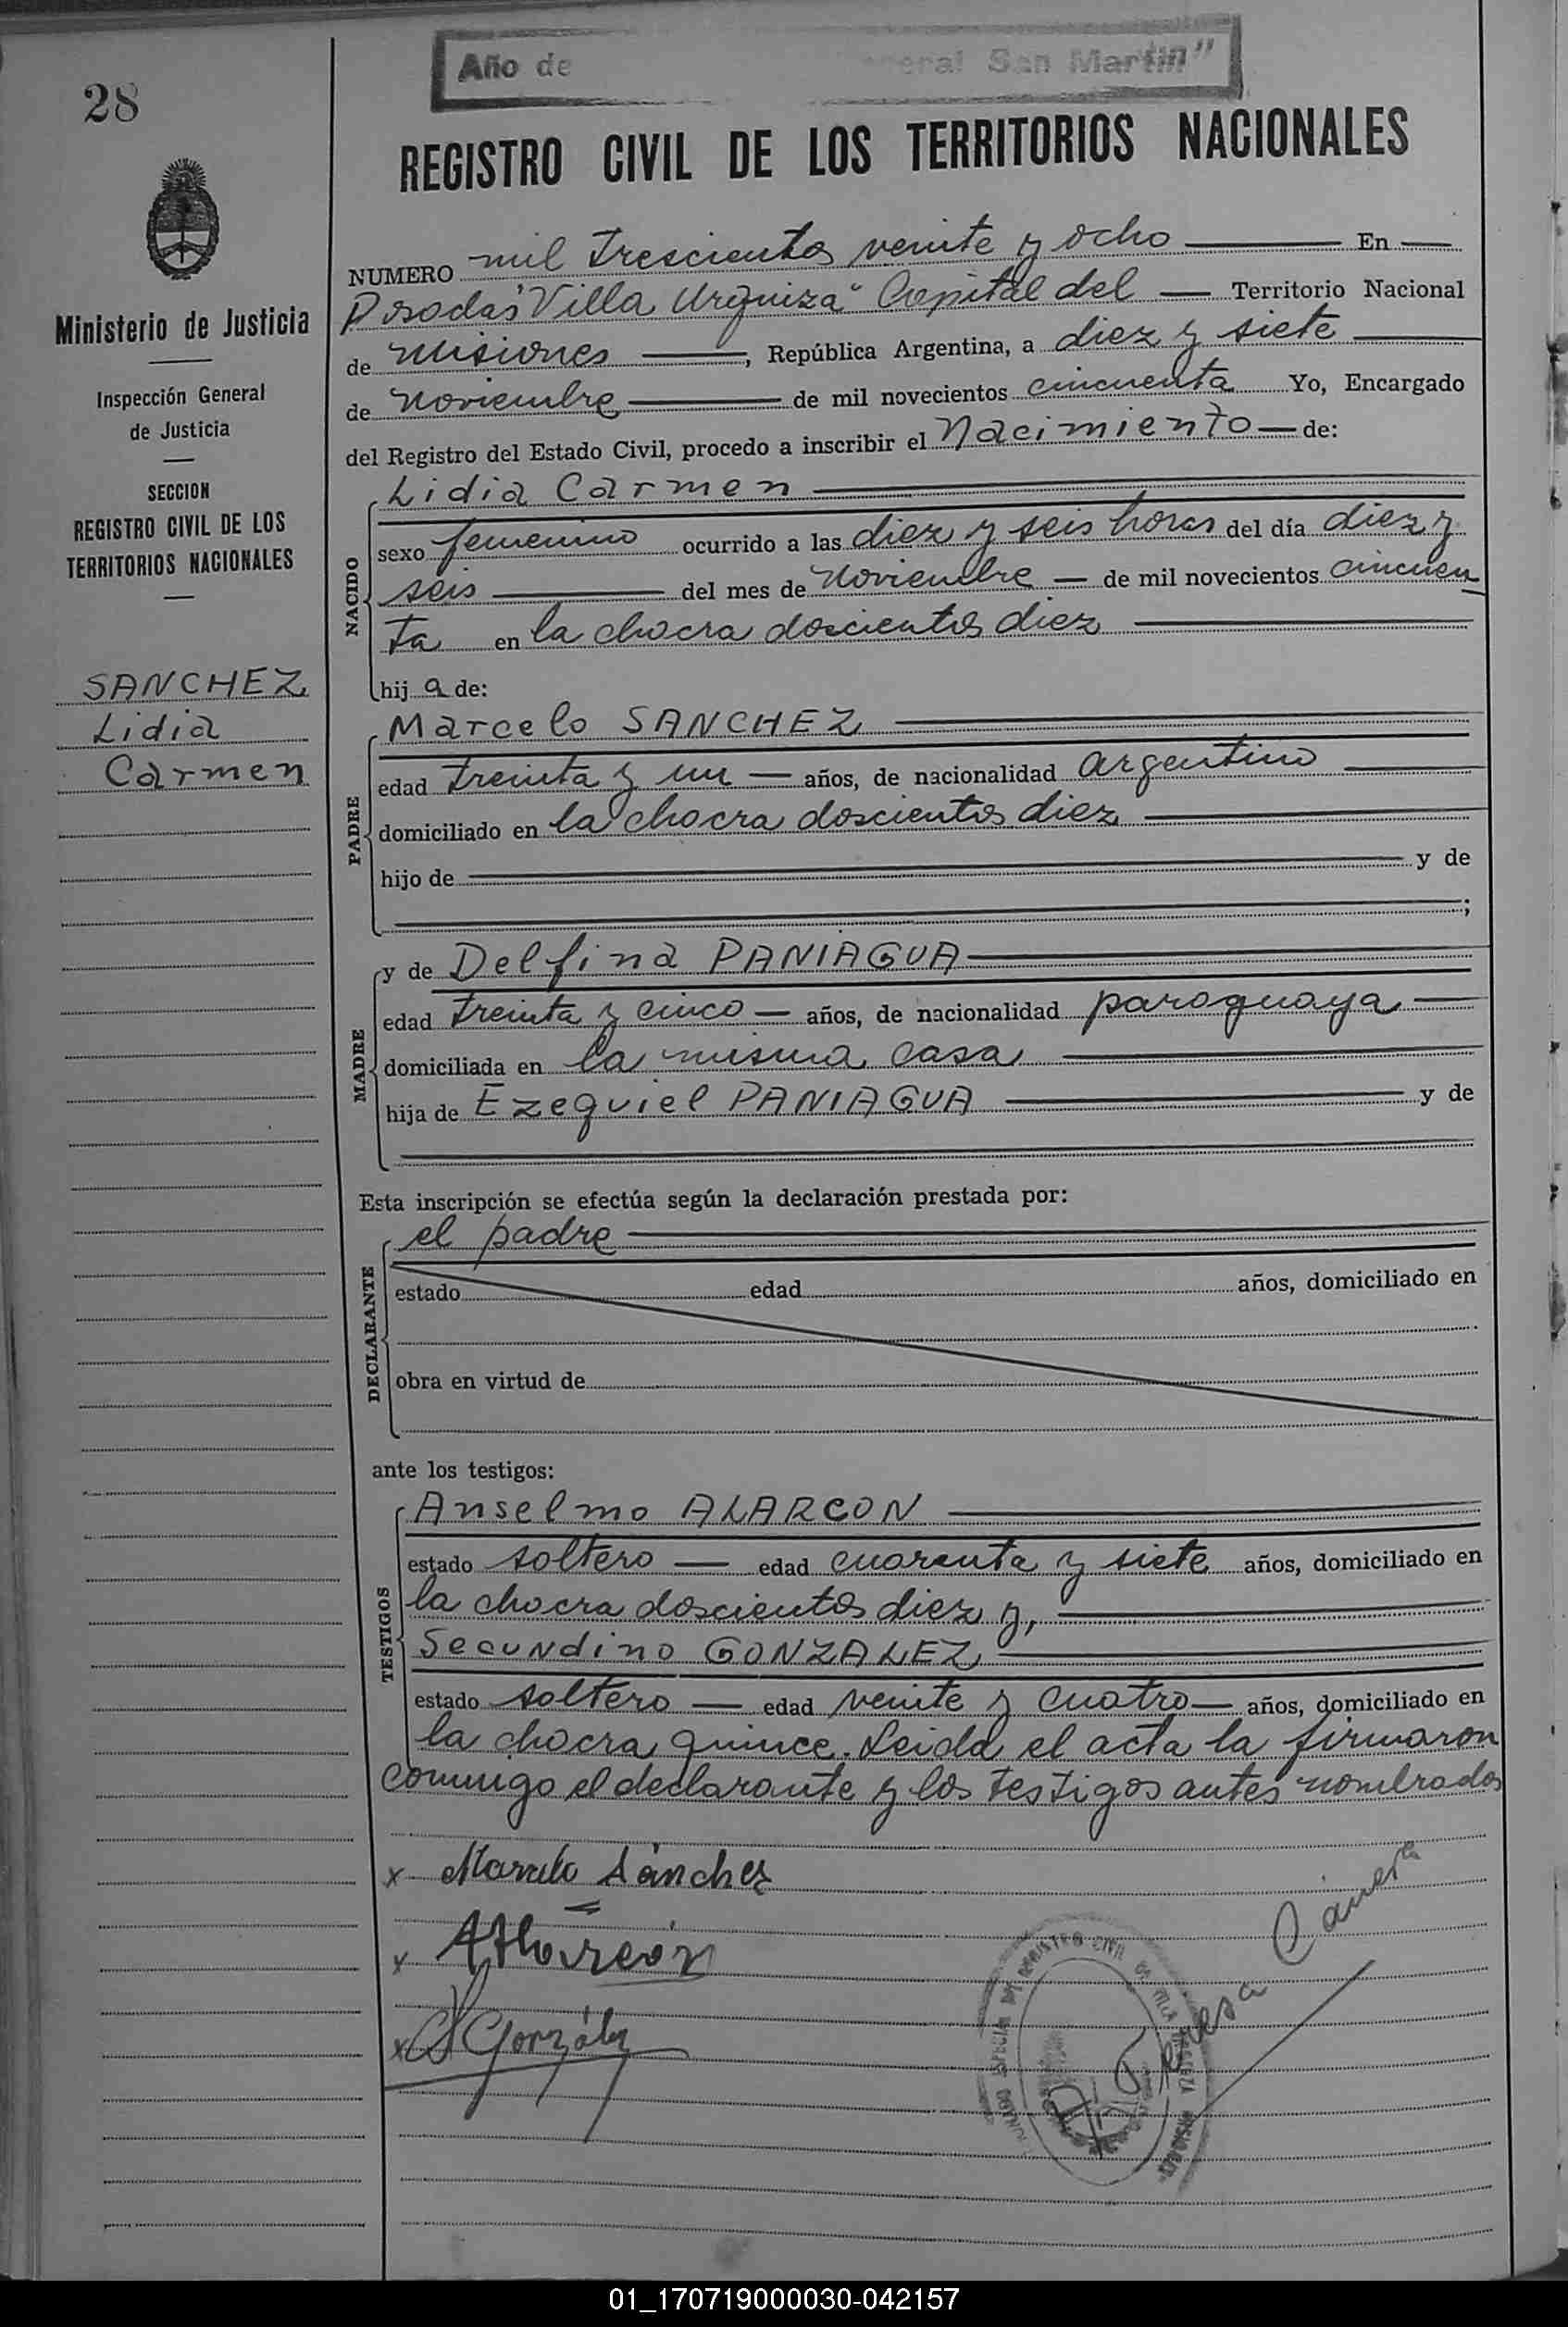 Año de eneral San Martín"
28
REGISTRO CIVIL DE LOS TERRITORIOS NACIONALES
Ministerio de Justicia
Inspección General
de Justicia
SECCION
REGISTRO CIVIL DE LOS
TERRITORIOS NACIONALES
SANCHEZ
Lidia
Carmen
NUMERO mil trescientos veinte y ocho En
Posadas "Villa Urquiza" Capital del Territorio Nacional
de Misiones, República Argentina, a diez y siete
de Noviembre de mil novecientos cincuenta Yo, Encargado
del Registro del Estado Civil, procedo a inscribir el Nacimiento de:
NACIDO
Lidia Carmen
sexo femenino ocurrido a las diez y seis horas del día diez y
seis del mes de Noviembre de mil novecientos cincuen
ta en la chacra doscientos diez
hija de:
PADRE
Marcelo SANCHEZ
edad treinta y un años, de nacionalidad argentino
domiciliado en la chacra doscientos diez
hijo de y de
;
MADRE
y de Delfina PANIAGUA
edad treinta y cinco años, de nacionalidad paraguaya
domiciliada en la misma casa
hija de Ezequiel PANIAGUA y de
Esta inscripción se efectúa según la declaración prestada por:
DECLARANTE
el padre
estado edad años, domiciliado en
obra en virtud de
ante los testigos:
TESTIGOS
Anselmo ALARCON
estado soltero edad cuarenta y siete años, domiciliado en
la chacra doscientos diez y,
Secundino GONZALEZ
estado soltero edad veinte y cuatro años, domiciliado en
la chacra quince. Leida el acta la firmaron
conmigo el declarante y los testigos antes nombrados
x Marcelo Sánchez
x AAlarcón
x S González
Teresa
REGISTRO CIVIL
01_170719000030-042157